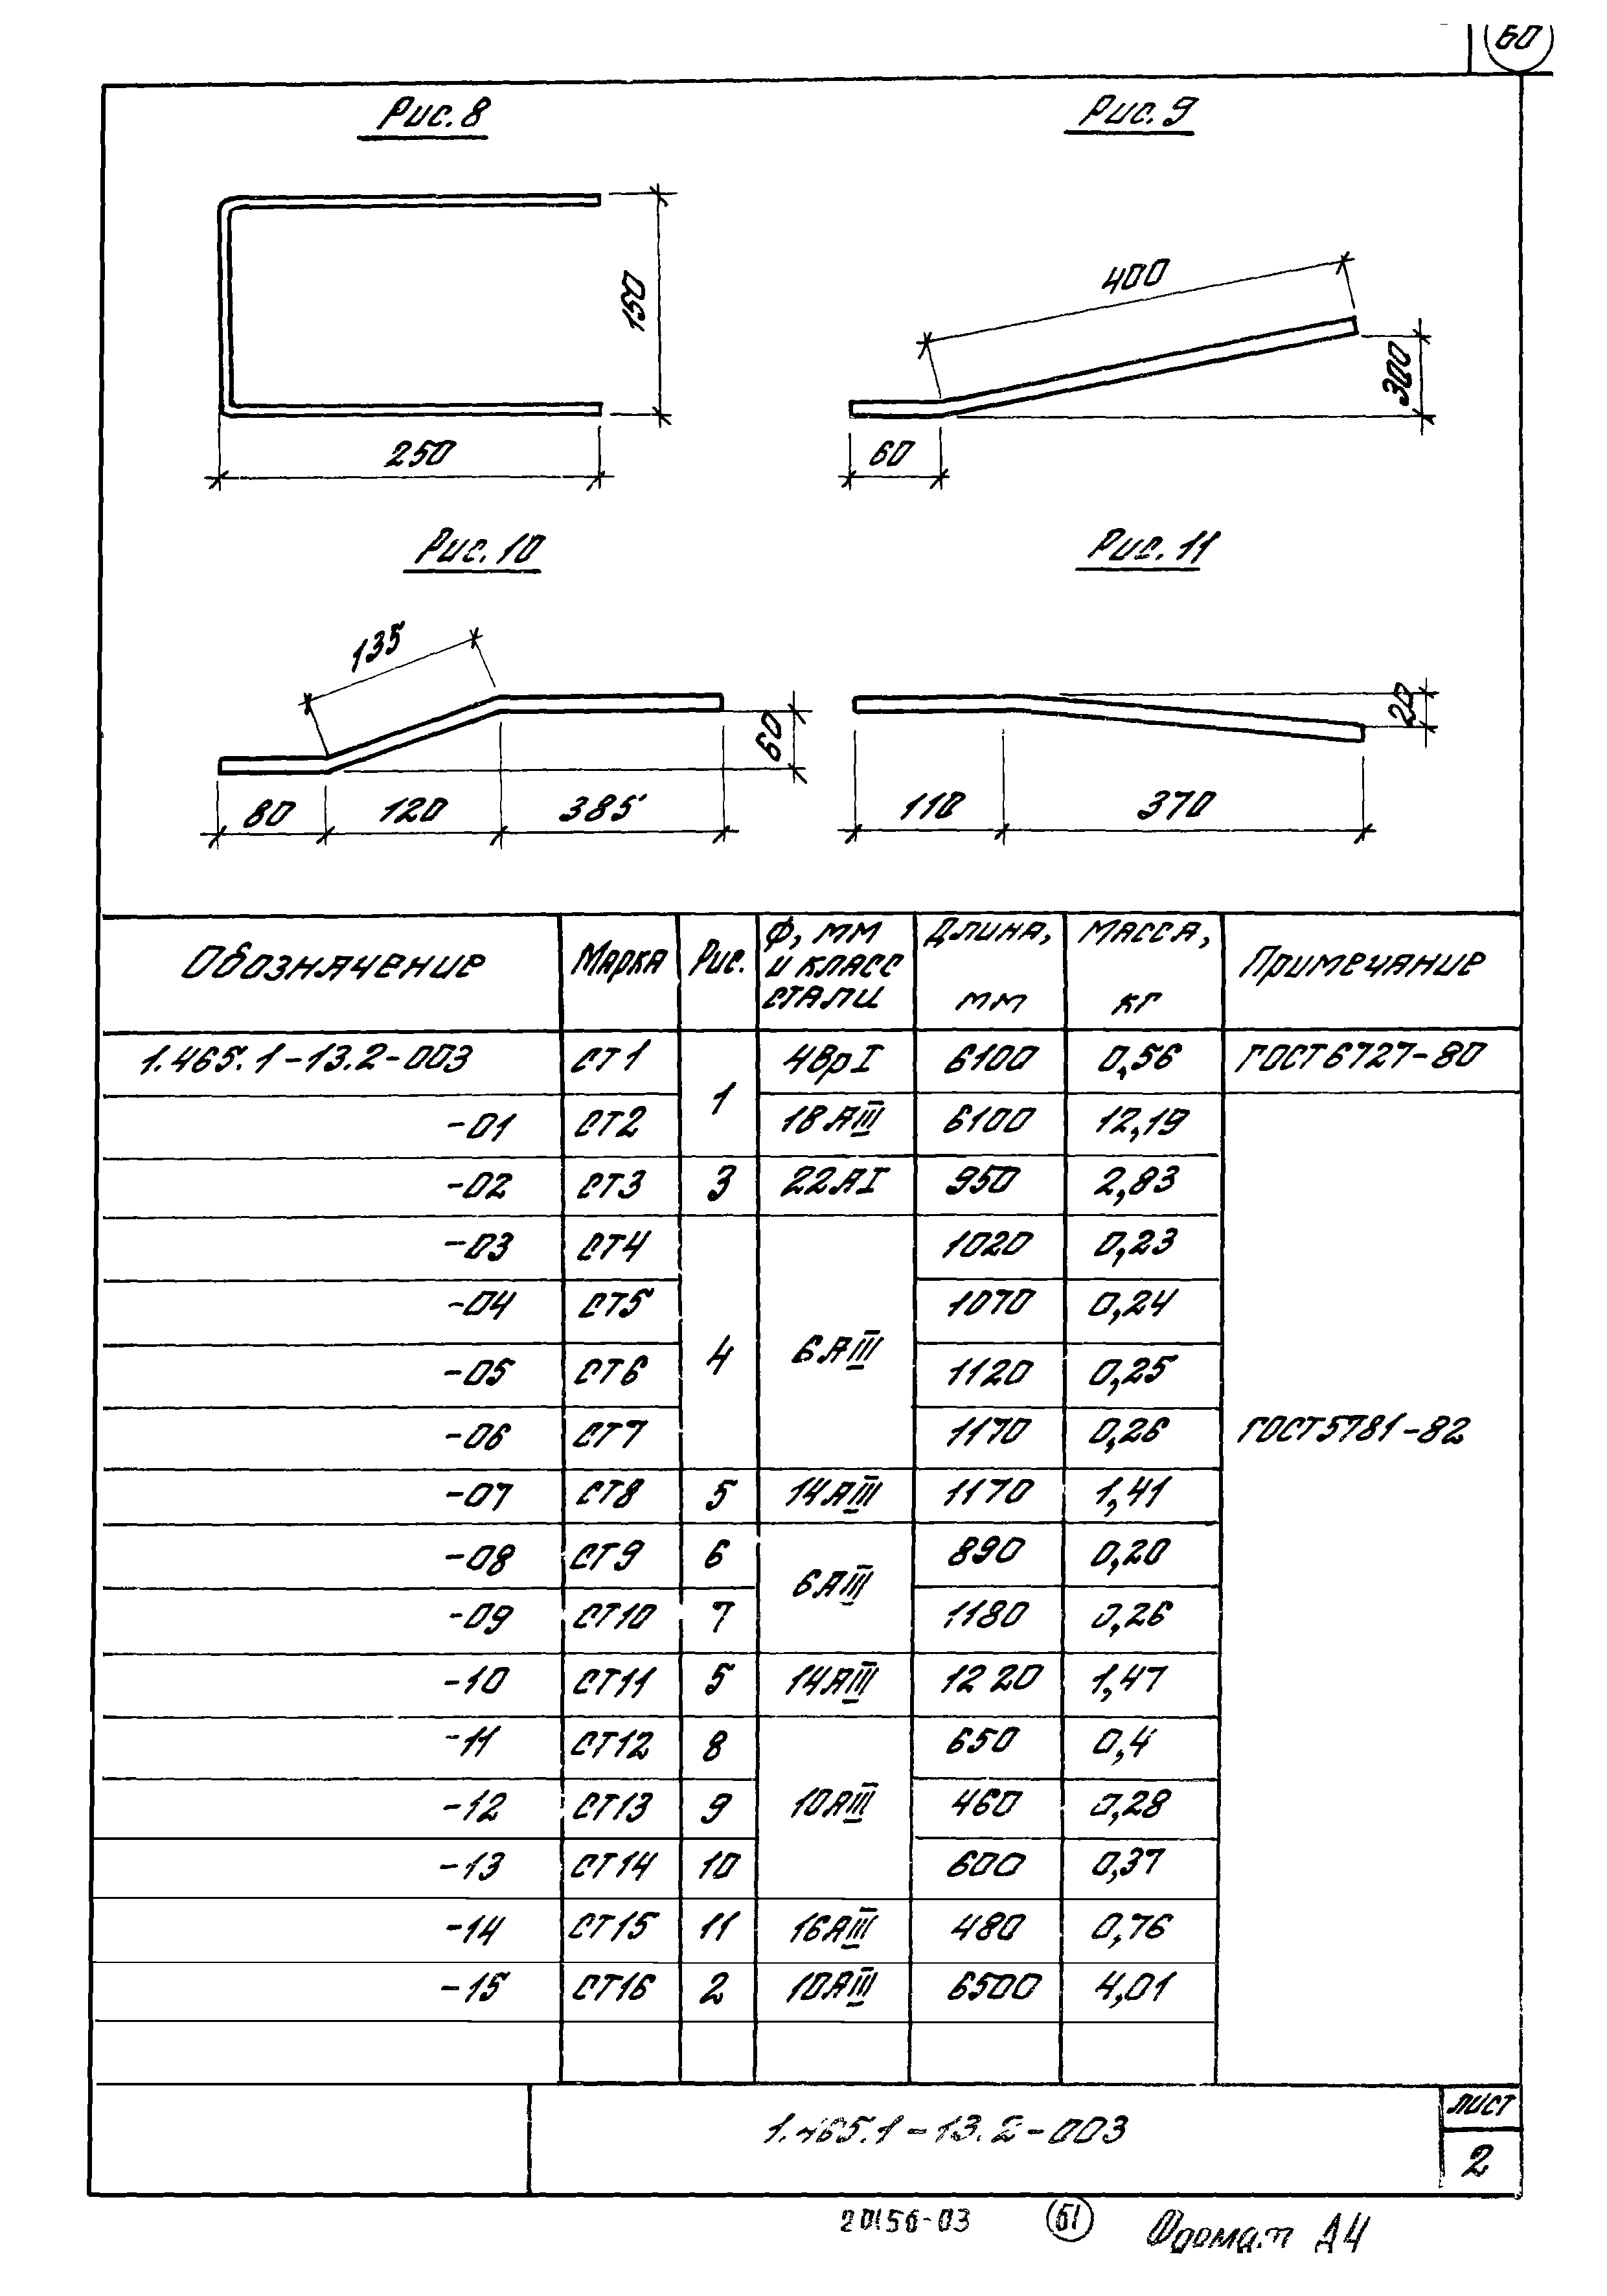 60
Рис. 8
Рис. 9
150
250
400
300
60
Рис. 10
Рис. 11
135
60
80 120 385
20
110 370
Обозначение Марка Рис. Ф, мм и класс стали Длина, мм Масса, кг Примечание
1.465.1-13.2-003 СТ1 1 4ВрI 6100 0,56 ГОСТ 6727-80
-01 СТ2 18АIII 6100 12,19
-02 СТ3 3 22АI 950 2,83
-03 СТ4 1020 0,23
-04 СТ5 1070 0,24
4 6АIII
-05 СТ6 1120 0,25
-06 СТ7 1170 0,26 ГОСТ 5781-82
-07 СТ8 5 14АIII 1170 1,41
-08 СТ9 6 6АIII 890 0,20
-09 СТ10 7 1180 0,26
-10 СТ11 5 14АIII 1220 1,47
-11 СТ12 8 650 0,4
-12 СТ13 9 10АIII 460 0,28
-13 СТ14 10 600 0,37
-14 СТ15 11 16АIII 480 0,76
-15 СТ16 2 10АIII 6500 4,01
1.465.1-13.2-003
лист
2
20156-03 61 Формат А4